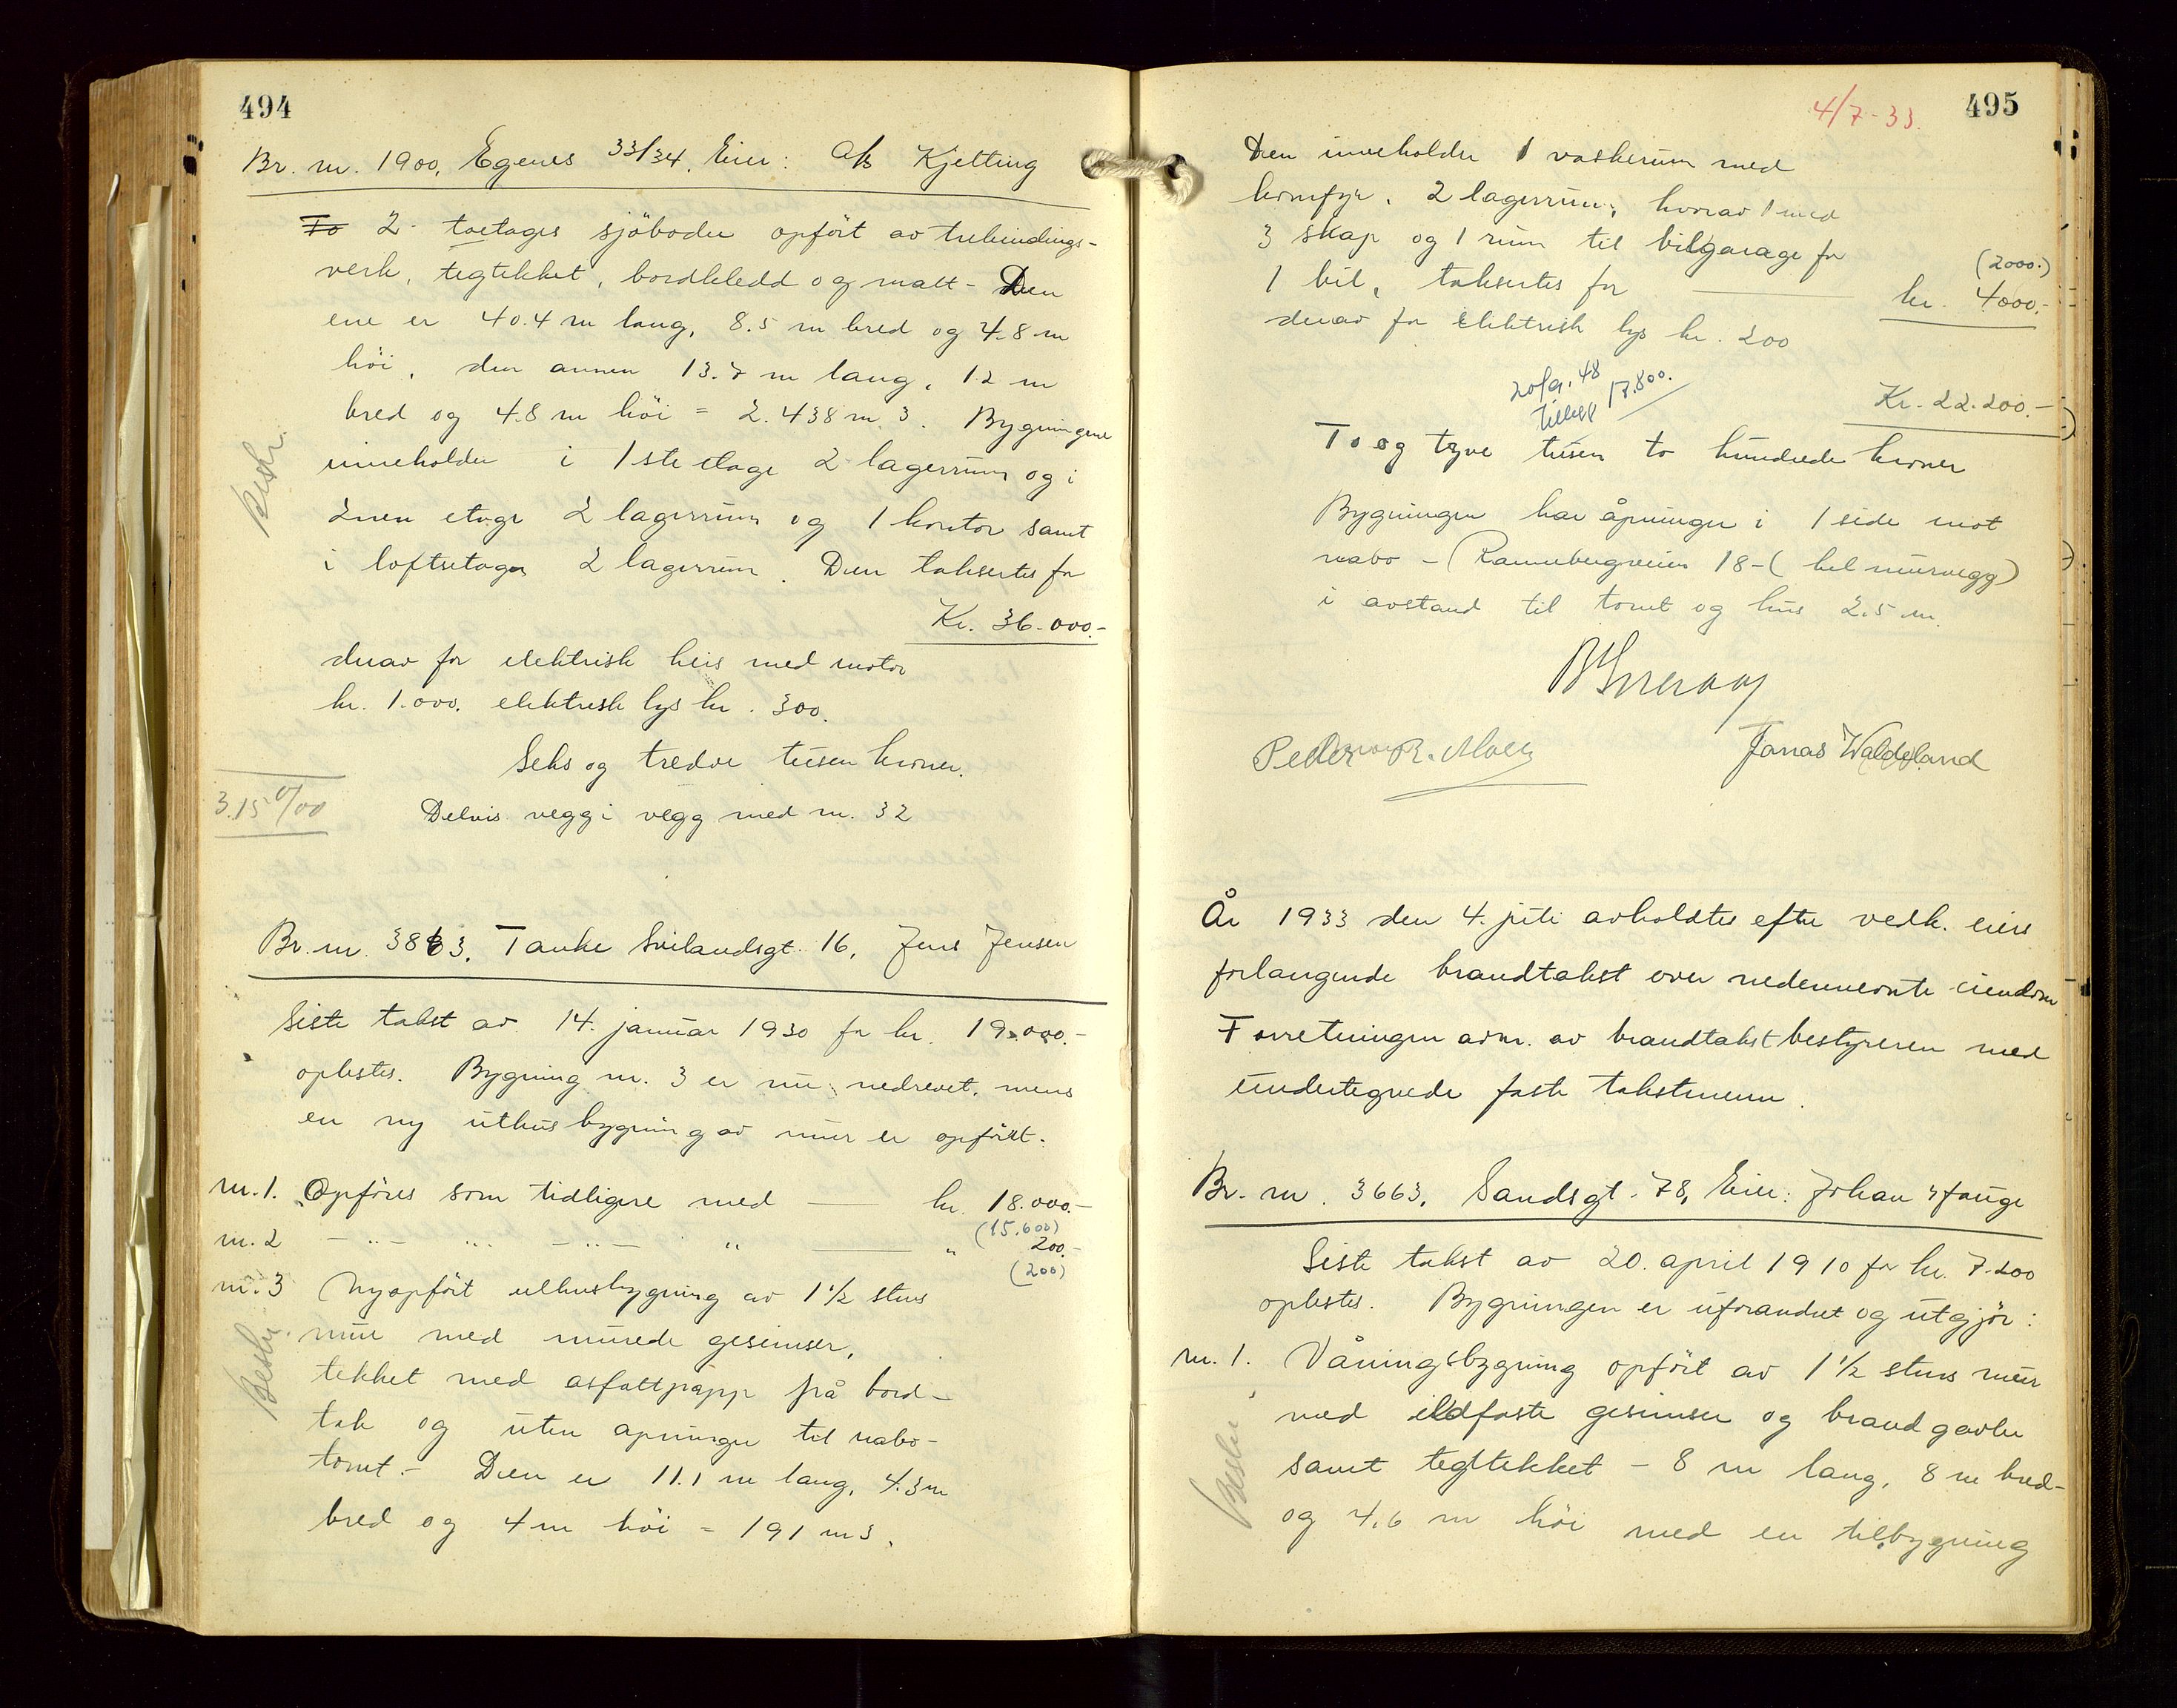 494
Br. nr. 1900, Egenes 33/34. Eier: A/S Kjetting
To 2 toetages sjöboder opfört av trebindings-
verk, tegltekket, bordkledd og malt - Den
ene er 40.4 m lang, 8.5 m bred og 4.8 m
höi, den annen 13.7 m lang, 12 m
bred og 4.8 m höi = 2.438 m 3. Bygningene
inneholder i 1ste etage 2 lagerrum og i
2nen etage 2 lagerrum og 1 kontor samt
i loftsetagen 2 lagerrum. Den takseres for
Kr. 36.000.-
derav for elektrisk heis med motor
kr. 1.000. elektrisk lys kr. 300.
Seks og tredve tusen kroner.
3.15 0/00
Delvis vegg i vegg med nr. 32
Br. nr. 3863, Tanke Svilandsgt. 16, Jens Jensen
Siste takst av 14. januar 1930 for kr. 19.000.-
oplestes. Bygning nr. 3 er nu nedrevet, mens
en ny uthusbygning av mur er opfört.
nr. 1. Opföres som tidligere med — kr. 18.000.-
(15.600)
nr. 2 - " - " - " - " — " 200.-
(200)
nr. 3 Nyopfört uthusbygning av 1 1/2 stens
mur med murede gesimser,
tekket med asfaltpapp på bord-
tak og uten apninger til nabo-
tomt. - Den er 11.1 m lang, 4.3 m
bred og 4 m höi = 191 m3.
4/7-33.
495
Den inneholder 1 vaskerum med
komfyr, 2 lagerrum, hvorav 1 med
3 skap og 1 rum til bilgarage for
(2000.-)
1 bil, taksertes for — kr. 4000.-
derav for elektrisk lys kr. 200
48
tillegg 17.800.
Kr. 22.200.-
To og tyve tusen to hundrede kroner
Bygningen har åpninger i 1 side mot
nabo - (Rannebergveien 18 - (hel murvegg)
i avstand til tomt og hus 2.5 m.
Jonas Waldeland
År 1933 den 4. juli avholdtes efter vedk. eiers
forlangende brandtakst over nedennevnte eiendom
Forretningen adm. av brandtakstbestyreren med
undertegnede faste takstmenn.
Br. nr. 3663, Sandsgt. 78, Eier: Johan Hauge
Siste takst av 20. april 1910 for kr. 7.200
oplestes. Bygningen er uforandret og utgjör:
nr. 1. Våningsbygning opfört av 1 1/2 stens mur
med ildfaste gesimser og brandgavler
samt tegltekket - 8 m lang, 8 m bred-
og 4,6 m höi med en tilbygning